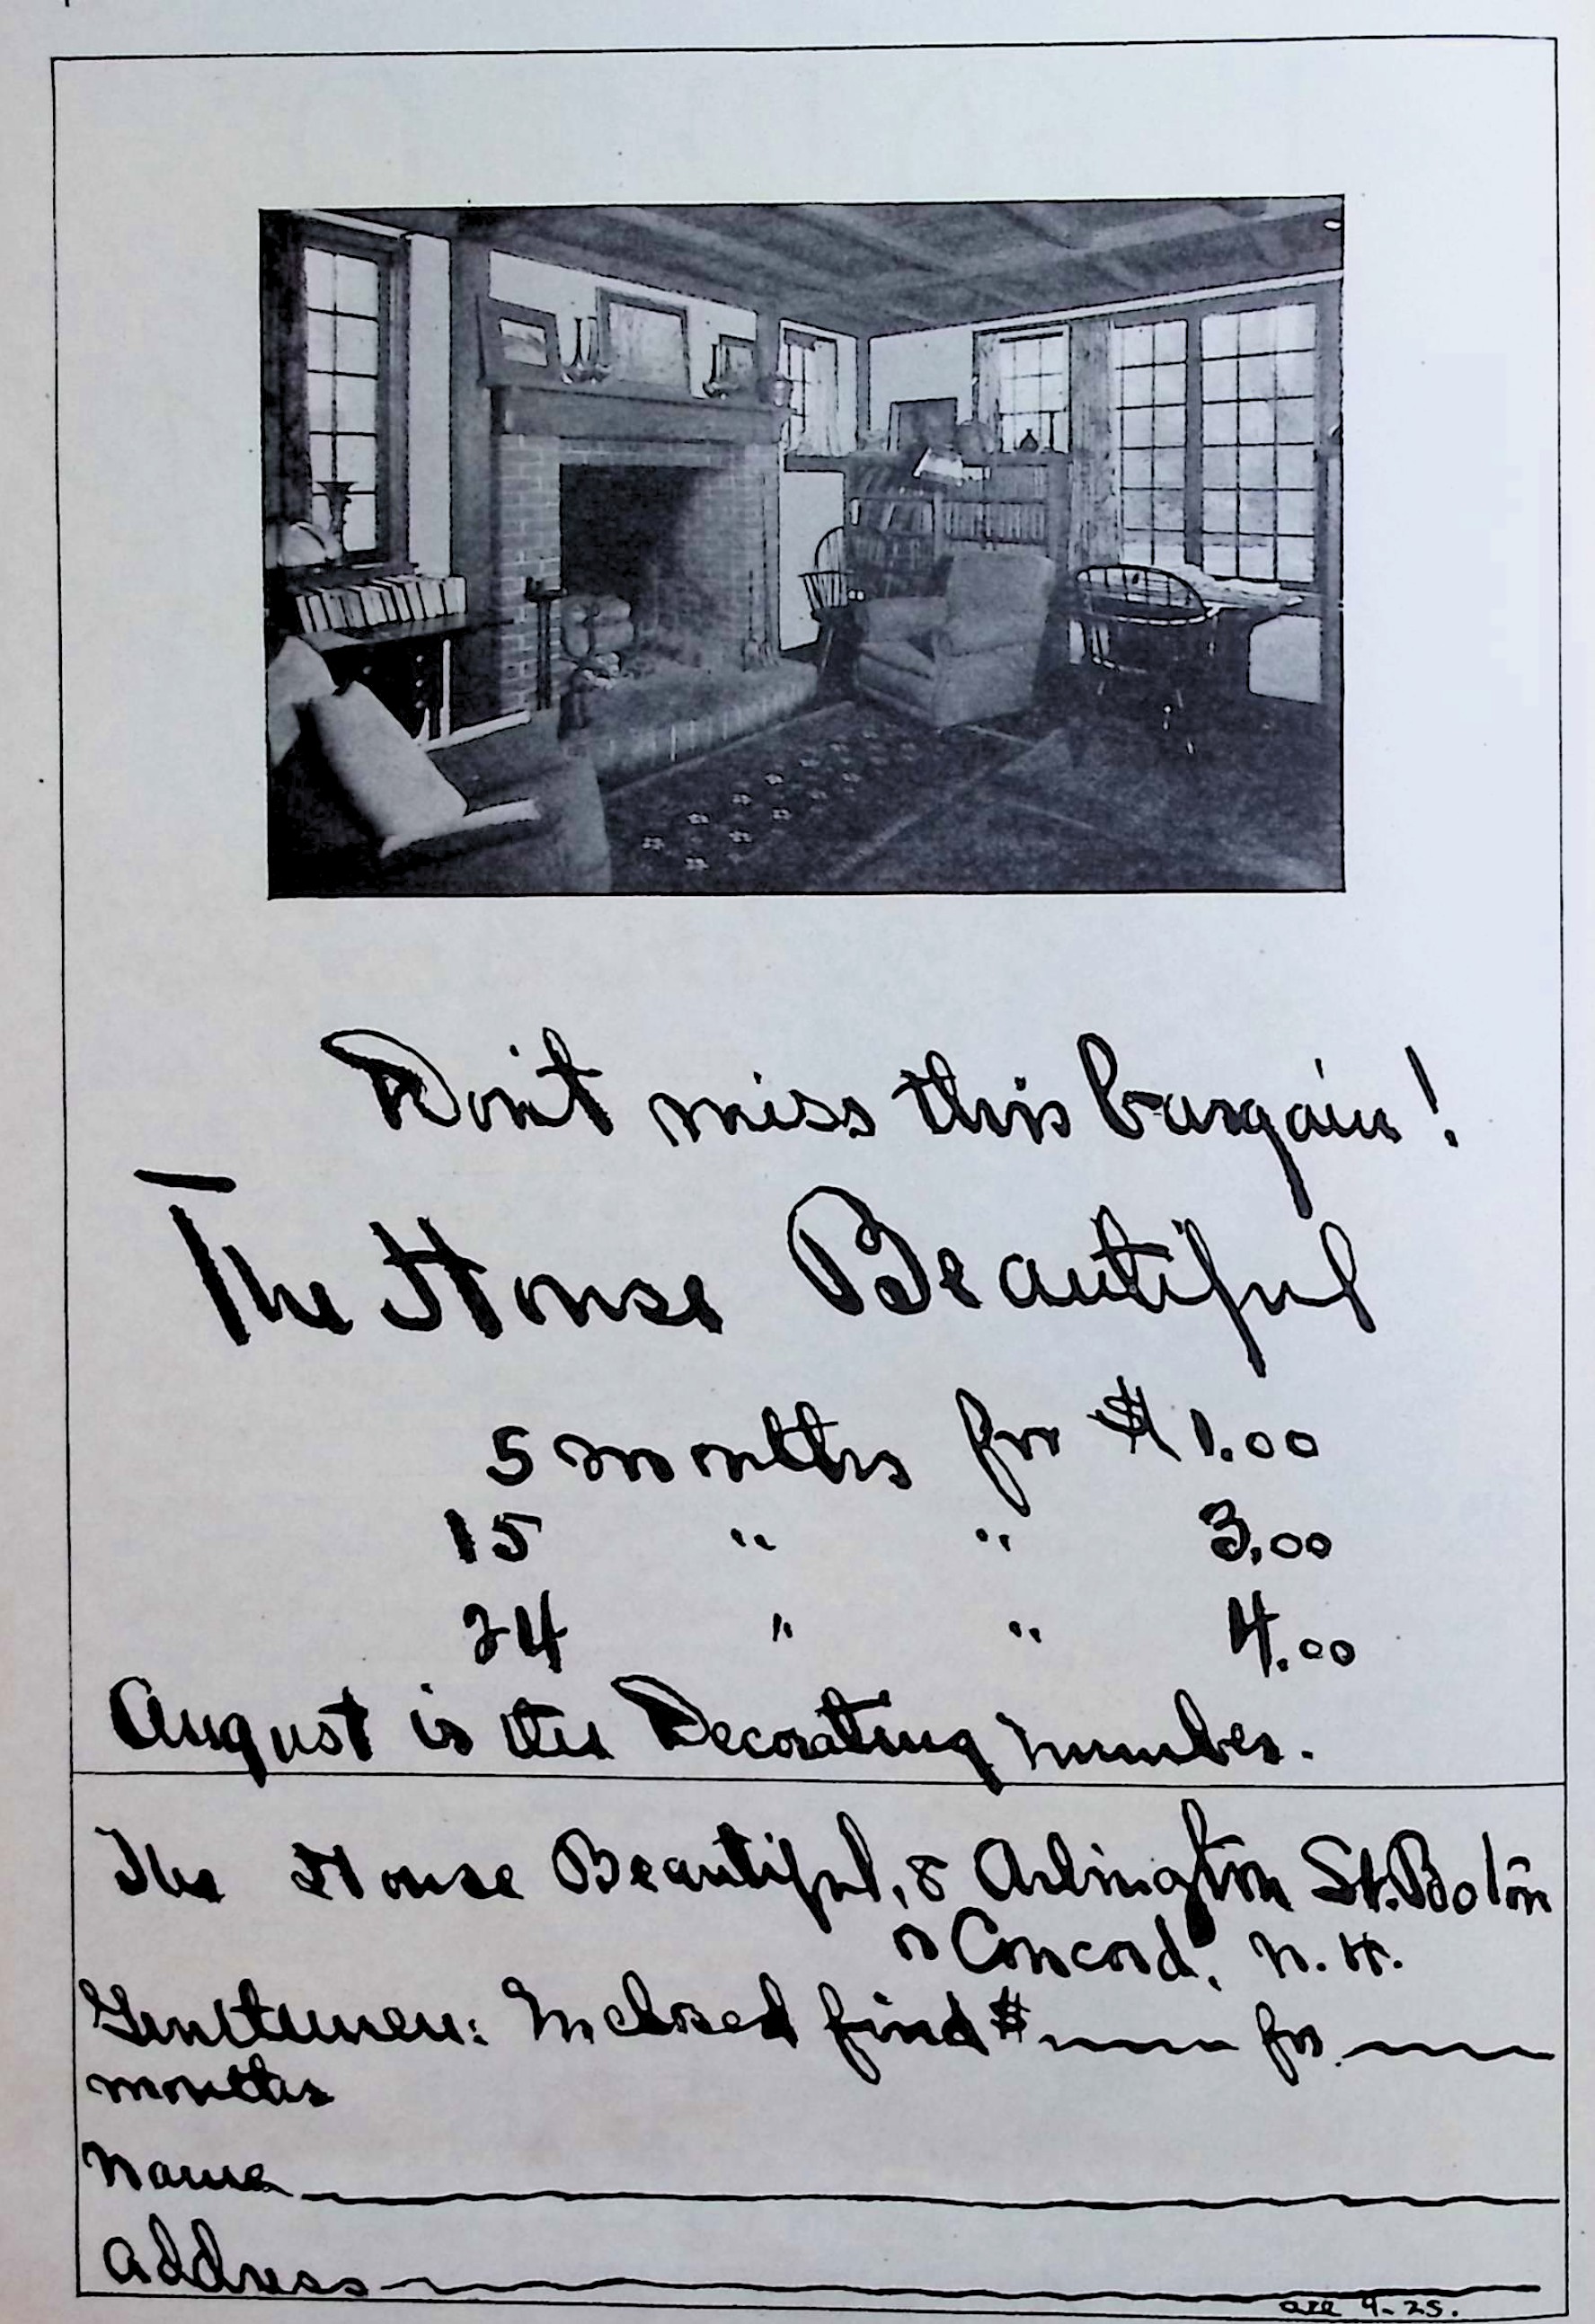 Don't miss this bargain!
The House Beautiful
5 months for $1.00
15 " " 3.00
24 " " 4.00
August is the Decorating number.
The House Beautiful, 8 Arlington St. Boston
or Concord, N. H.
Gentlemen: Inclosed find $ for
months
Name
Address
9-25.